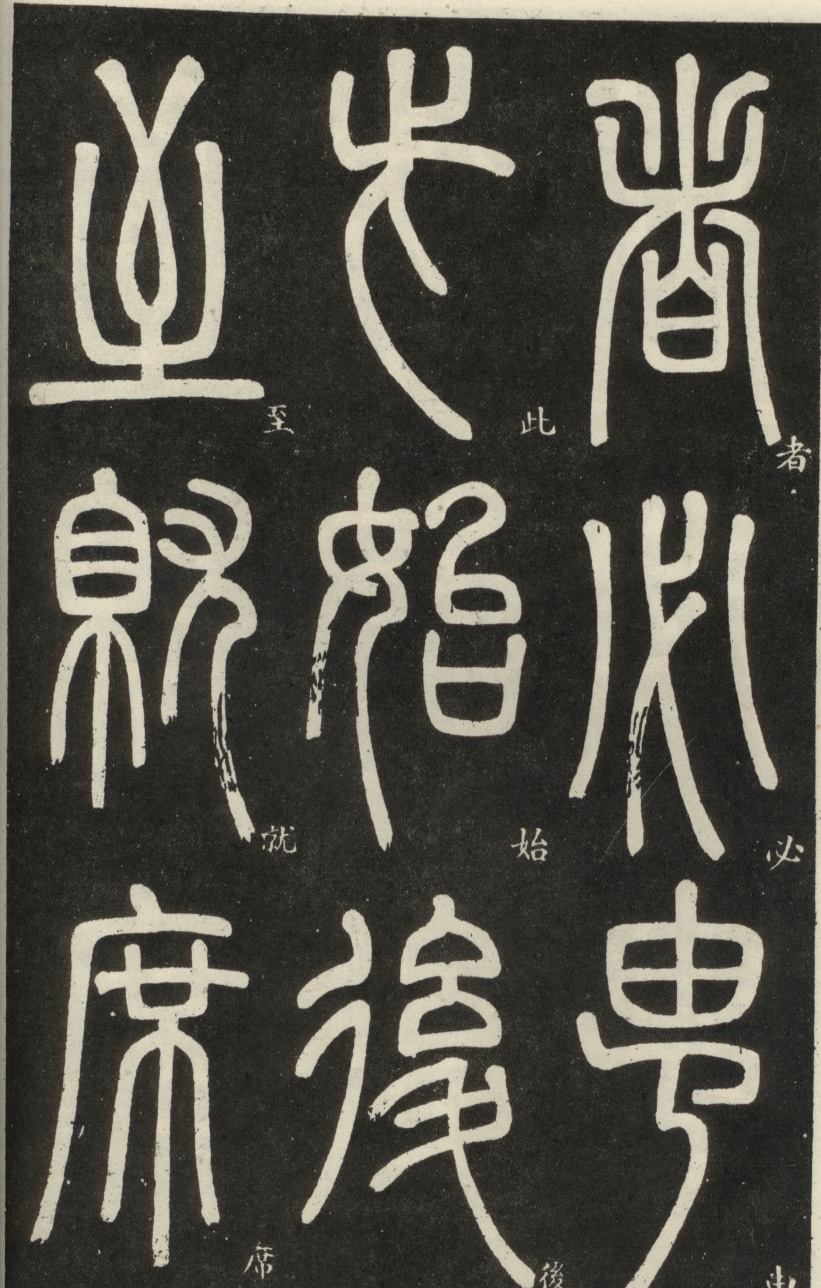 者必甹
此始後
至就席